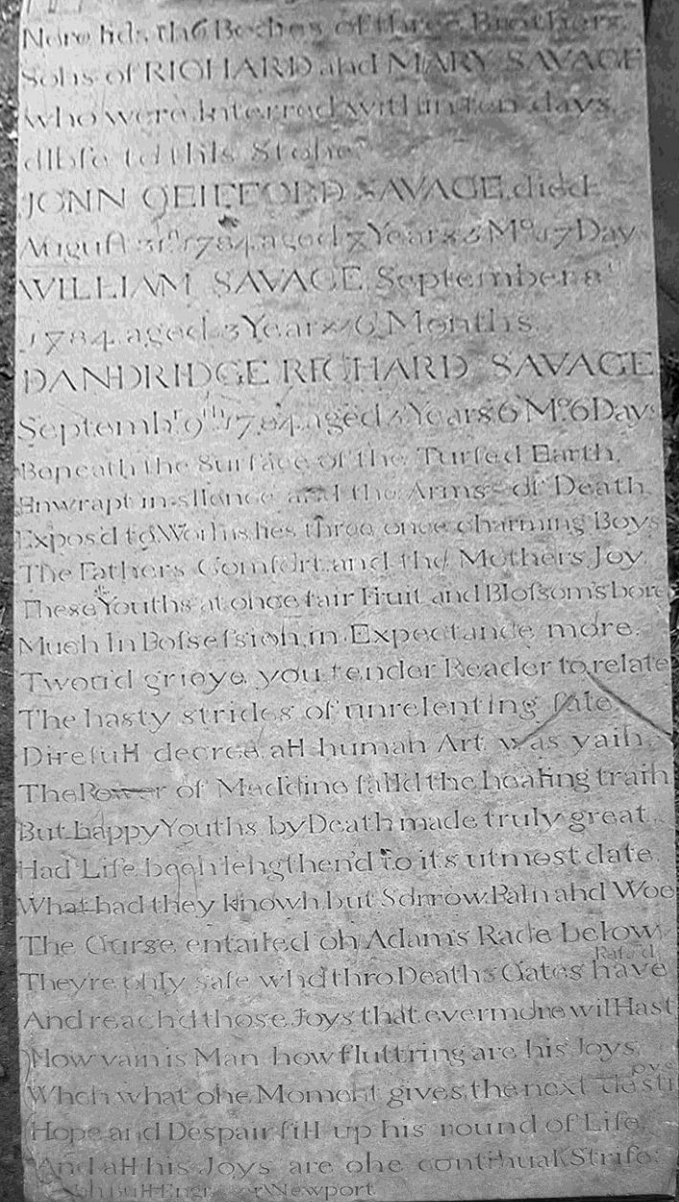 Here lies the Bodies of three Brothers
Sons of RICHARD and MARY SAVAGE
who were Interred within ten days
close to this Stone
JOHN GEIFFORD SAVAGE died
August 31st 1784 aged 7 Years 3 Mo 17 Days
WILLIAM SAVAGE September
1784 aged 3 Years 6 Months
DANDRIDGE RICHARD SAVAGE
Septembr 9th 1784 aged Years 6 Mo 6 Days
Beneath the Surface of the Turfed Earth
Enwrapt in silence and the Arms of Death
Expos'd to Worms lies three once charming Boys
The Fathers Comfort and the Mothers Joy
These Youths at once fair Fruit and Blofsoms bore
Much In Pofsefsion in Expectance more
Twou'd grieve you tender Reader to relate
The hasty strides of unrelenting fate
Direfull decree all human Art was vain
The Power of Medcine faild the healing train
But happy Youths by Death made truly great
Had Life been lengthen'd to its utmost date
What had they known but Sorrow Pain and Woe
The Curse entailed on Adam's Race below
They're only safe who thro Deaths Gates have Pafs'd
And reach'd those Joys that evermore will last
How vain is Man how fluttring are his Joys
When what one Moment gives the next destroys
Hope and Despair fill up his round of Life
And all his Joys are one continual Strife
Jno Bull Engraver Newport